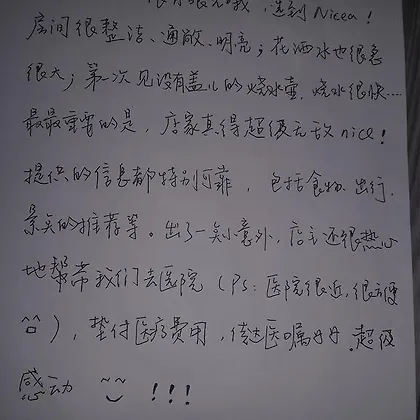 很有眼光哦，选到Nicea！
房间很整洁、通敞、明亮；花洒水也很急
很大；第一次见没有盖儿的烧水壶，烧水很快……
最最重要的是，店家真得超级无敌nice！
提供的信息都特别可靠，包括食物、出行、
景点的推荐等。出了一点小意外，店主还很热心
地帮带我们去医院（Ps：医院很近，很方便
^o^），垫付医疗费用，传达医嘱好好，超级
感动 ~‿~ ！！！